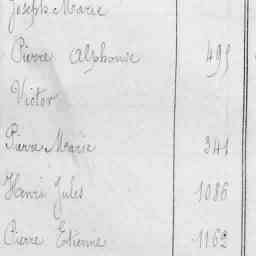 Joseph Marie
Pierre Alphonse 495
Victor
Pierre Marie 341
Henri Jules 1086
Pierre Etienne 1162